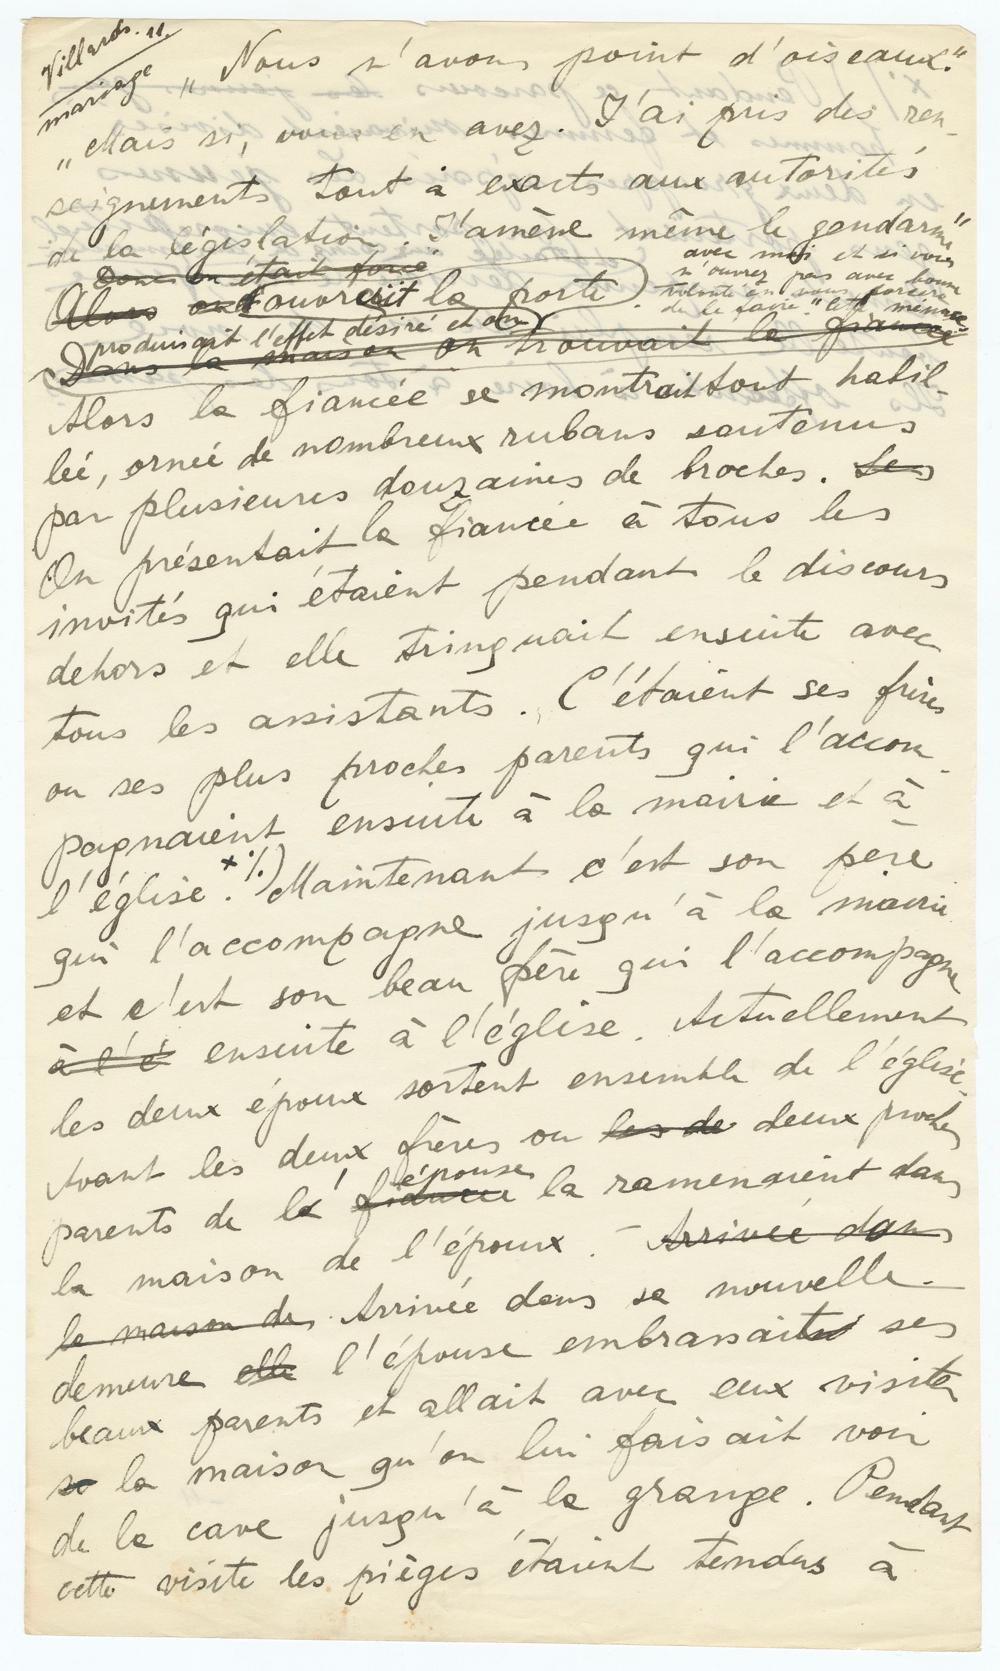 Villards. 11.
mariage
"Nous n'avons point d'oiseaux."
"Mais si, vous en avez. J'ai pris des ren-
seignements tout à exacts aux autorités
de la législation. J'amène même le gendarme"
avec moi et si vous
n'ouvrez pas avec bonne
volonté on vous forcera
de le faire." Cette menace
Donc on était forcé
Alors on ouvrait la porte.
produisait l'effet désiré et on
Dans la maison on trouvait la fiancée
Alors la fiancée se montrait tout habil-
leé, ornée de nombreux rubans soutenus
par plusieures douzaines de broches. Les
On présentait la fiancée à tous les
invités qui étaient pendant le discours
dehors et elle tringuait ensuite avec
tous les assistants. C'étaient ses frères
ou ses plus proches parents qui l'accom-
pagnaient ensuite à la mairie et à
l'église x ·/.) Maintenant c'est son père
qui l'accompagne jusqu'à la mairie
et c'est son beau père qui l'accompagne
à l'é ensuite à l'église. Actuellement
les deux époux sortent ensemble de l'église.
Avant les deux frères ou les de deux proches
épouse
parents de l' fiancée la ramenaient dans
la maison de l'époux. - Arrivée dans
la maison de Arrivée dans sa nouvelle
demeure elle l'épouse embrassait ses
beaux parents et allait avec eux visiter
sa la maison qu'on lui faisait voir
de la cave jusqu'à la grange. Pendant
cette visite les pièges étaient tendus à